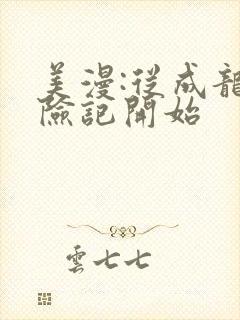 美漫:從成龍
險記開始
雲七七